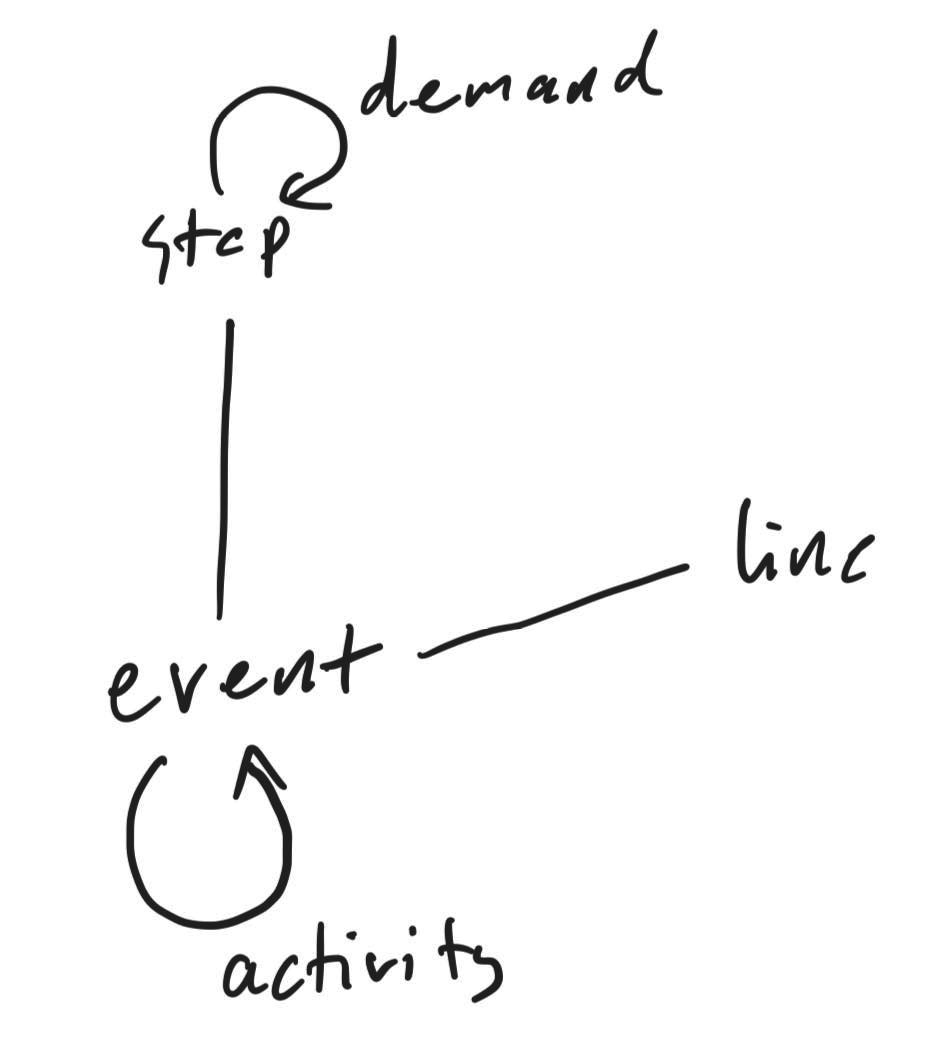 demand
step
line
event
activity